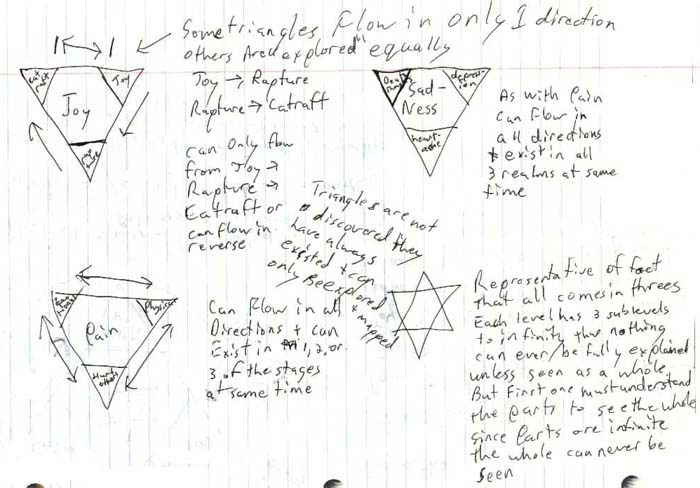 Some triangles flow in only 1 direction
others Are "explored" equally
1 ↔ 1
Joy
Joy
Joy → Rapture
Rapture → Catraft
can Only flow
from Joy →
Rapture →
Eatraft or
can flow in
reverse
Sad-
Ness
depression
heart-
ache
As with Pain
can flow in
all directions
+ exist in all
3 realms at same
time
Triangles are not
discovered they
have always
existed + can
only Be Explored
+ mapped
Pain
Physical
Hurt
others
Can flow in all
Directions + can
Exist in 1, 2, or
3 of the stages
at same time
Representative of fact
that all comes in threes
Each level has 3 sublevels
to infinity thus nothing
can ever be fully explained
unless seen as a whole
But First one must understand
the Parts to see the whole
since Parts are infinite
the whole can never be
seen